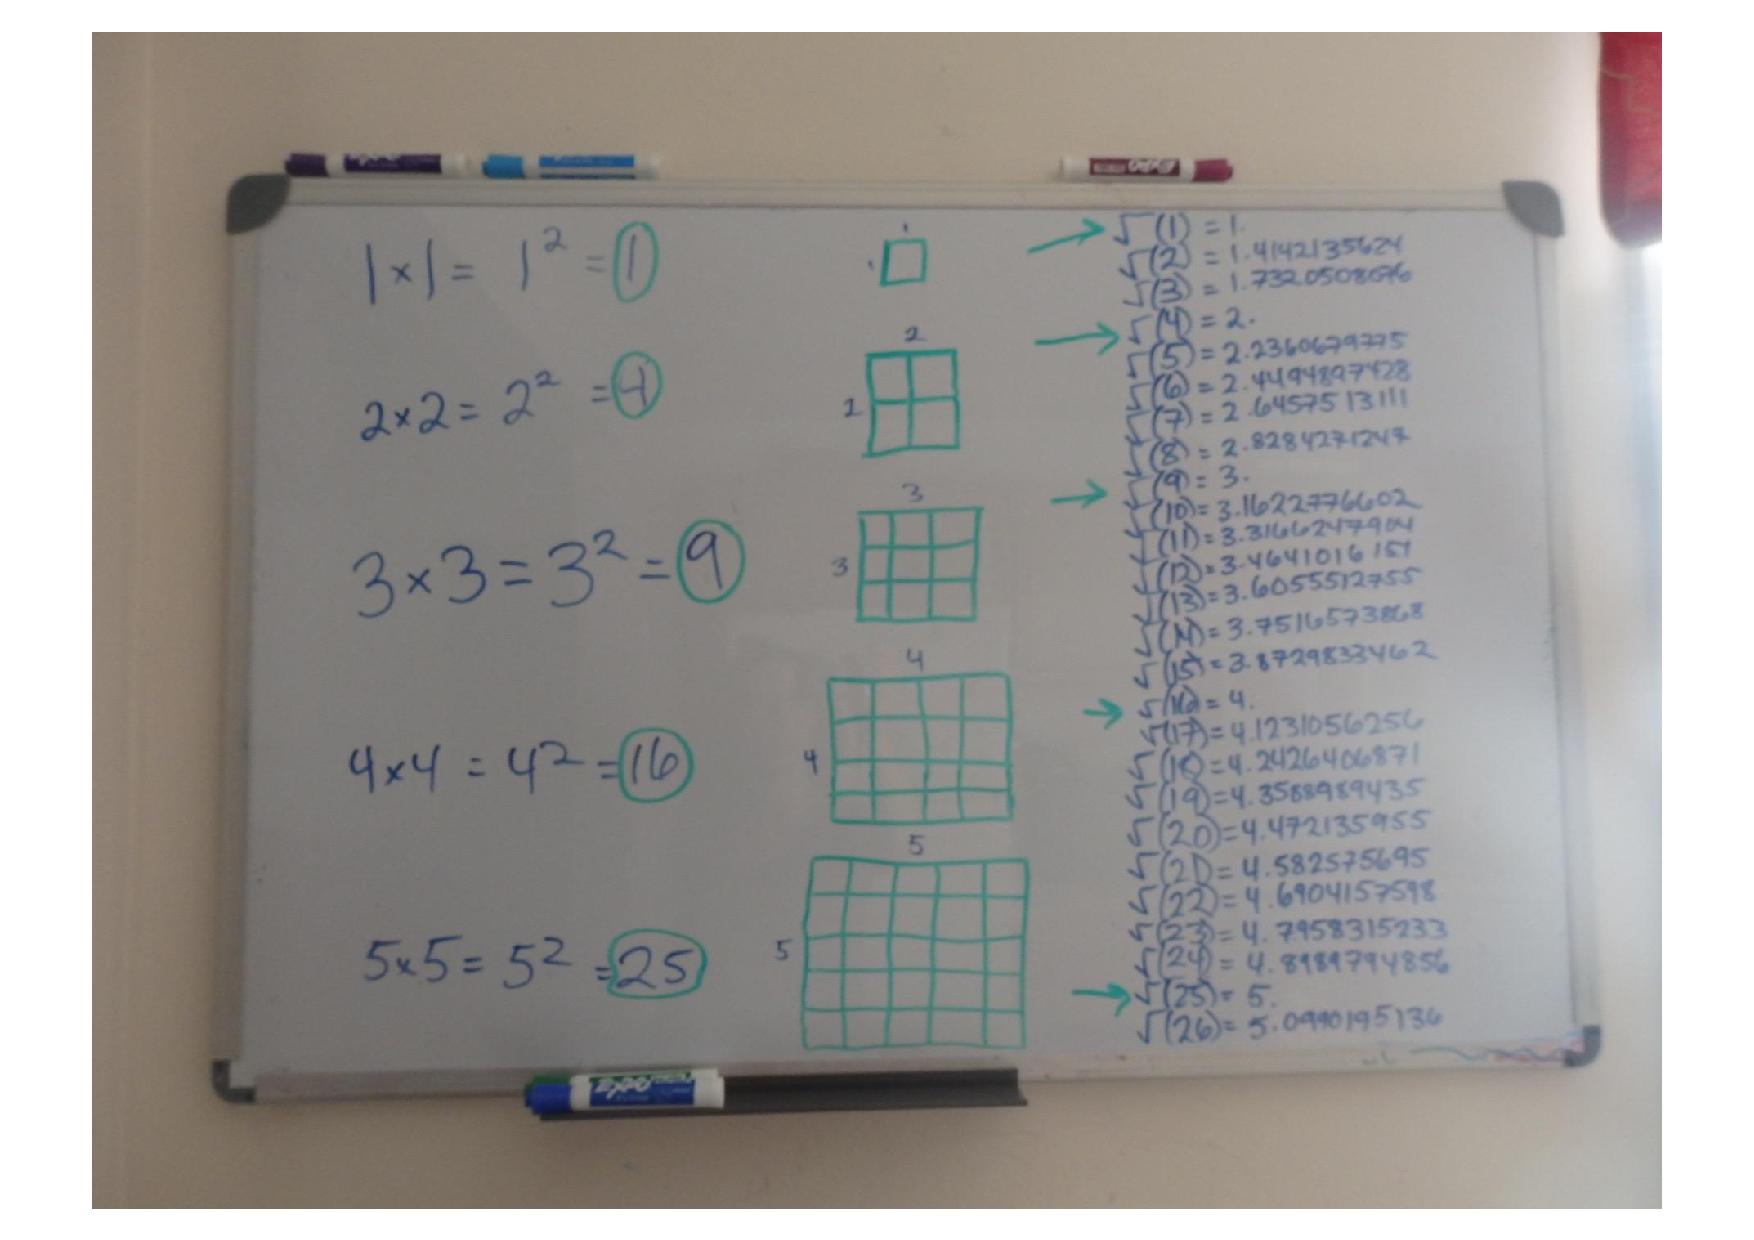 EXPO
EXPO
1×1 = 1² = 1
2×2 = 2² = 4
3×3 = 3² = 9
4×4 = 4² = 16
5×5 = 5² = 25
1
1
2
2
3
3
4
4
5
5
√(1) = 1.
√(2) = 1.4142135624
√(3) = 1.7320508076
√(4) = 2.
√(5) = 2.2360679775
√(6) = 2.4494897428
√(7) = 2.6457513111
√(8) = 2.8284271247
√(9) = 3.
√(10) = 3.1622776602
√(11) = 3.3166247904
√(12) = 3.4641016151
√(13) = 3.6055512755
√(14) = 3.7516573868
√(15) = 3.8729833462
√(16) = 4.
√(17) = 4.1231056256
√(18) = 4.2426406871
√(19) = 4.3588989435
√(20) = 4.472135955
√(21) = 4.582575695
√(22) = 4.6904157598
√(23) = 4.7958315233
√(24) = 4.8989794856
√(25) = 5.
√(26) = 5.0990195136
EXPO